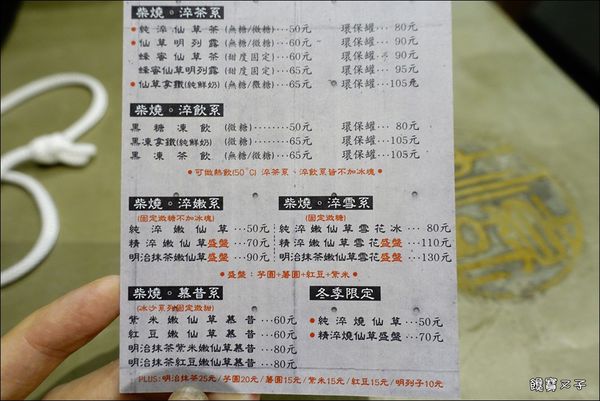 柴燒。淬茶系
●純淬仙草茶(無糖/微糖)……50元 環保罐… 80元
●仙草明列露(無糖/微糖)……60元 環保罐… 90元
蜂蜜仙草茶(甜度固定)……60元 環保罐… 90元
蜂蜜仙草明列露(甜度固定)……65元 環保罐… 95元
●仙草拿鐵(純鮮奶)(無糖/微糖)……65元 環保罐…105元
柴燒。淬飲系
黑糖凍飲(微糖)………50元 環保罐… 80元
黑凍拿鐵(純鮮奶)(微糖)………65元 環保罐…105元
黑凍茶飲(無糖/微糖)………65元 環保罐…105元
●可做熱飲(50°C) 淬茶系、淬飲系皆不加冰塊●
柴燒。淬嫩系
(固定微糖不加冰塊)
純淬嫩仙草 …50元
精淬嫩仙草盛盤 …70元
明治抹茶嫩仙草盛盤 …90元
柴燒。淬雪系
(固定微糖)
純淬嫩仙草雪花冰 … 80元
精淬嫩仙草雪花盛盤 …110元
明治抹茶嫩仙草雪花盛盤 …130元
●盛盤:芋圓+薯圓+紅豆+紫米●
柴燒。慕昔系
(冰沙系列固定微甜)
紫米嫩仙草慕昔 …60元
紅豆嫩仙草慕昔 …60元
明治抹茶紫米嫩仙草慕昔 …80元
明治抹茶紅豆嫩仙草慕昔 …80元
冬季限定
●純淬燒仙草 …50元
●精淬燒仙草盛盤 …70元
PLUS:明治抹茶25元/芋圓20元/薯圓15元/紫米15元/紅豆15元/明列子10元
饞寶又子